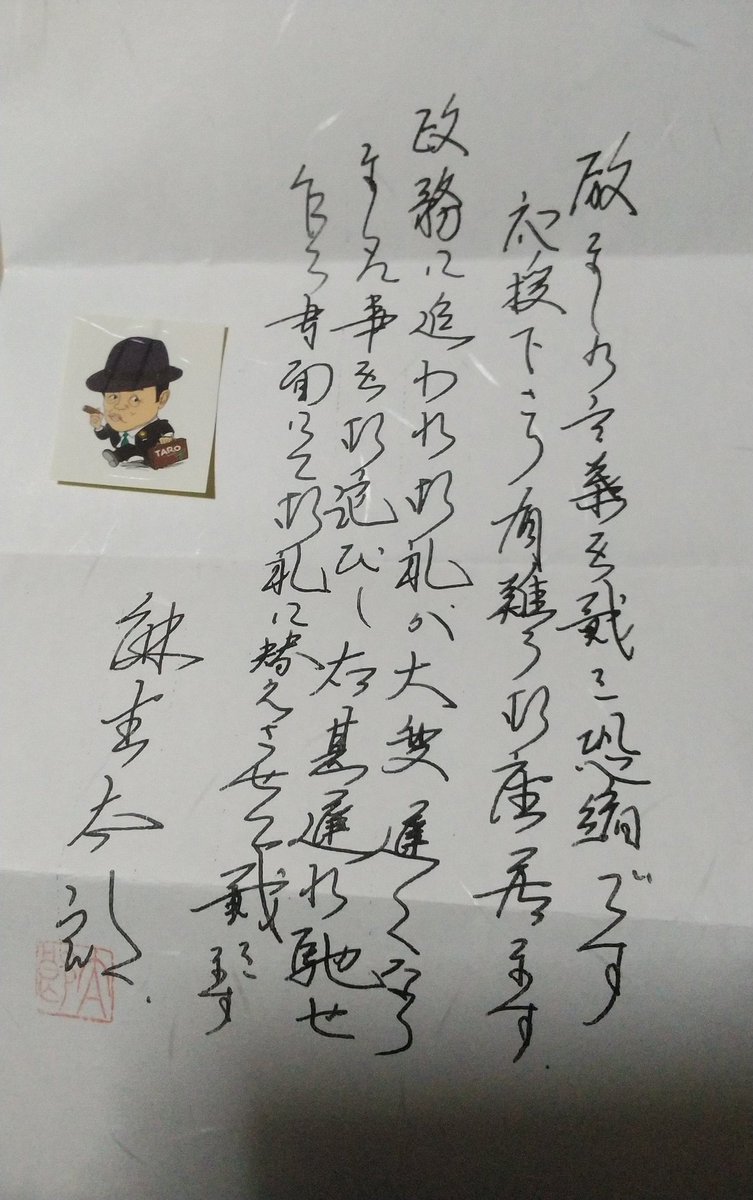 励ましの言葉を戴き恐縮です
応援下さり有難う御座居ます.
政務に追われ御礼が大変遅くなり
ました事を御詫びし 甚遅れ馳せ
乍ら書面にて御礼に替えさせて戴きます
麻生太郎.
TARO